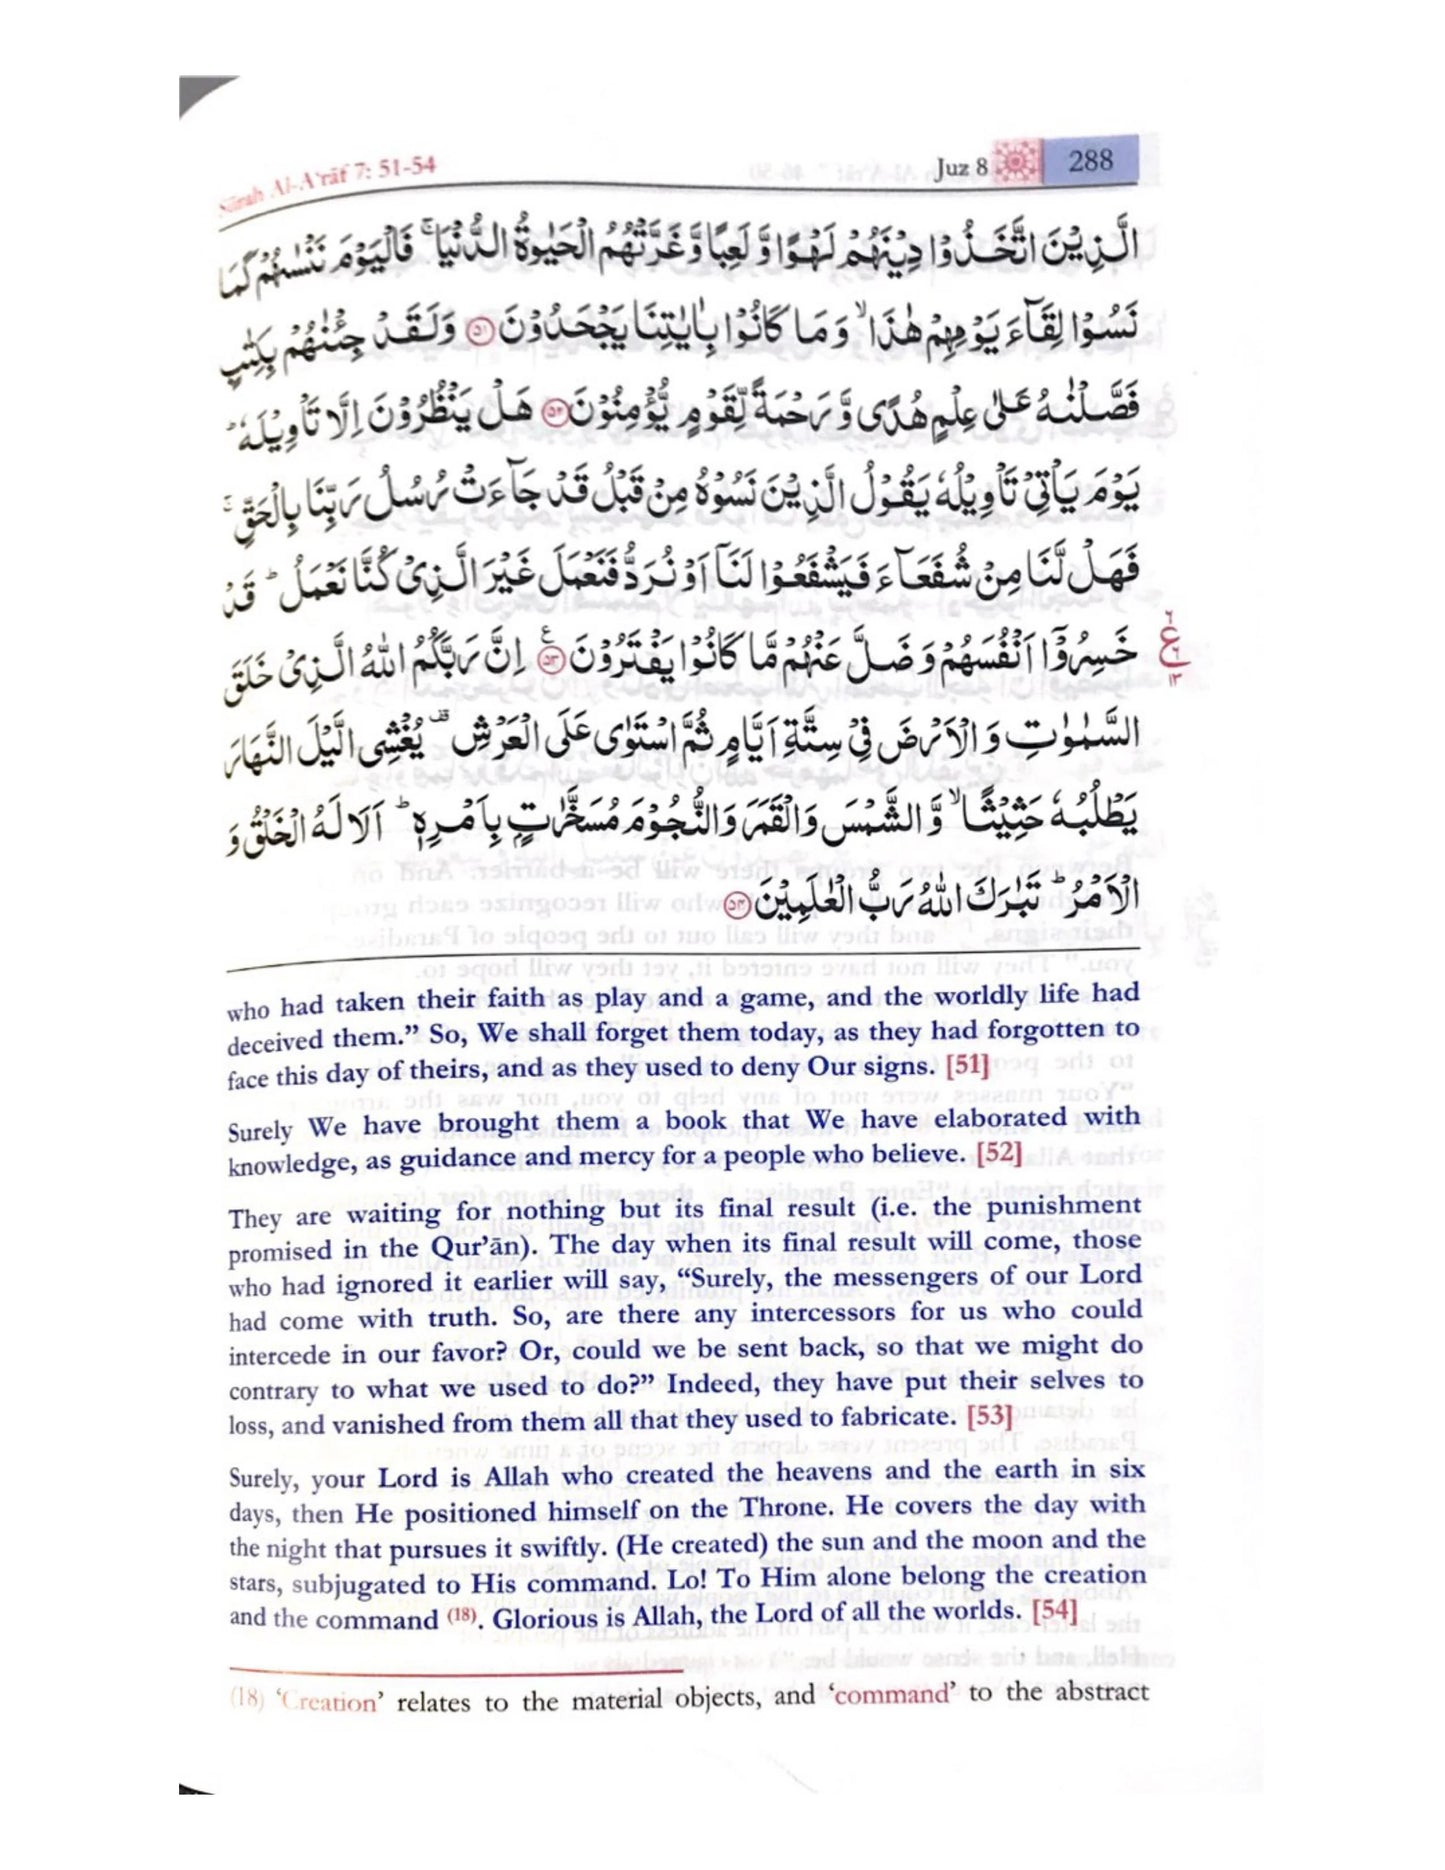 Sūrah Al-A'rāf 7: 51-54
Juz 8
288
الَّذِيْنَ اتَّخَذُوْا دِيْنَهُمْ لَهْوًا وَّ لَعِبًا وَّ غَرَّتْهُمُ الْحَيٰوةُ الدُّنْيَا ۚ فَالْيَوْمَ نَنْسٰىهُمْ كَمَا
نَسُوْا لِقَآءَ يَوْمِهِمْ هٰذَا ۙ وَ مَا كَانُوْا بِاٰيٰتِنَا يَجْحَدُوْنَ ﴿۵۱﴾ وَ لَقَدْ جِئْنٰهُمْ بِكِتٰبٍ
فَصَّلْنٰهُ عَلٰى عِلْمٍ هُدًى وَّ رَحْمَةً لِّقَوْمٍ يُّؤْمِنُوْنَ ﴿۵۲﴾ هَلْ يَنْظُرُوْنَ اِلَّا تَاْوِيْلَهٗ ؕ
يَوْمَ يَاْتِيْ تَاْوِيْلُهٗ يَقُوْلُ الَّذِيْنَ نَسُوْهُ مِنْ قَبْلُ قَدْ جَآءَتْ رُسُلُ رَبِّنَا بِالْحَقِّ ۚ
فَهَلْ لَّنَا مِنْ شُفَعَآءَ فَيَشْفَعُوْا لَنَاۤ اَوْ نُرَدُّ فَنَعْمَلَ غَيْرَ الَّذِيْ كُنَّا نَعْمَلُ ؕ قَدْ
خَسِرُوْۤا اَنْفُسَهُمْ وَ ضَلَّ عَنْهُمْ مَّا كَانُوْا يَفْتَرُوْنَ ﴿۵۳﴾ اِنَّ رَبَّكُمُ اللّٰهُ الَّذِيْ خَلَقَ
السَّمٰوٰتِ وَ الْاَرْضَ فِيْ سِتَّةِ اَيَّامٍ ثُمَّ اسْتَوٰى عَلَى الْعَرْشِ ۟ يُغْشِى الَّيْلَ النَّهَارَ
يَطْلُبُهٗ حَثِيْثًا ۙ وَّ الشَّمْسَ وَ الْقَمَرَ وَ النُّجُوْمَ مُسَخَّرٰتٍۭ بِاَمْرِهٖ ؕ اَلَا لَهُ الْخَلْقُ وَ
الْاَمْرُ ؕ تَبٰرَكَ اللّٰهُ رَبُّ الْعٰلَمِيْنَ ﴿۵۴﴾
who had taken their faith as play and a game, and the worldly life had
deceived them.” So, We shall forget them today, as they had forgotten to
face this day of theirs, and as they used to deny Our signs. [51]
Surely We have brought them a book that We have elaborated with
knowledge, as guidance and mercy for a people who believe. [52]
They are waiting for nothing but its final result (i.e. the punishment
promised in the Qur’ān). The day when its final result will come, those
who had ignored it earlier will say, “Surely, the messengers of our Lord
had come with truth. So, are there any intercessors for us who could
intercede in our favor? Or, could we be sent back, so that we might do
contrary to what we used to do?” Indeed, they have put their selves to
loss, and vanished from them all that they used to fabricate. [53]
Surely, your Lord is Allah who created the heavens and the earth in six
days, then He positioned himself on the Throne. He covers the day with
the night that pursues it swiftly. (He created) the sun and the moon and the
stars, subjugated to His command. Lo! To Him alone belong the creation
and the command (18). Glorious is Allah, the Lord of all the worlds. [54]
(18) ‘Creation’ relates to the material objects, and ‘command’ to the abstract